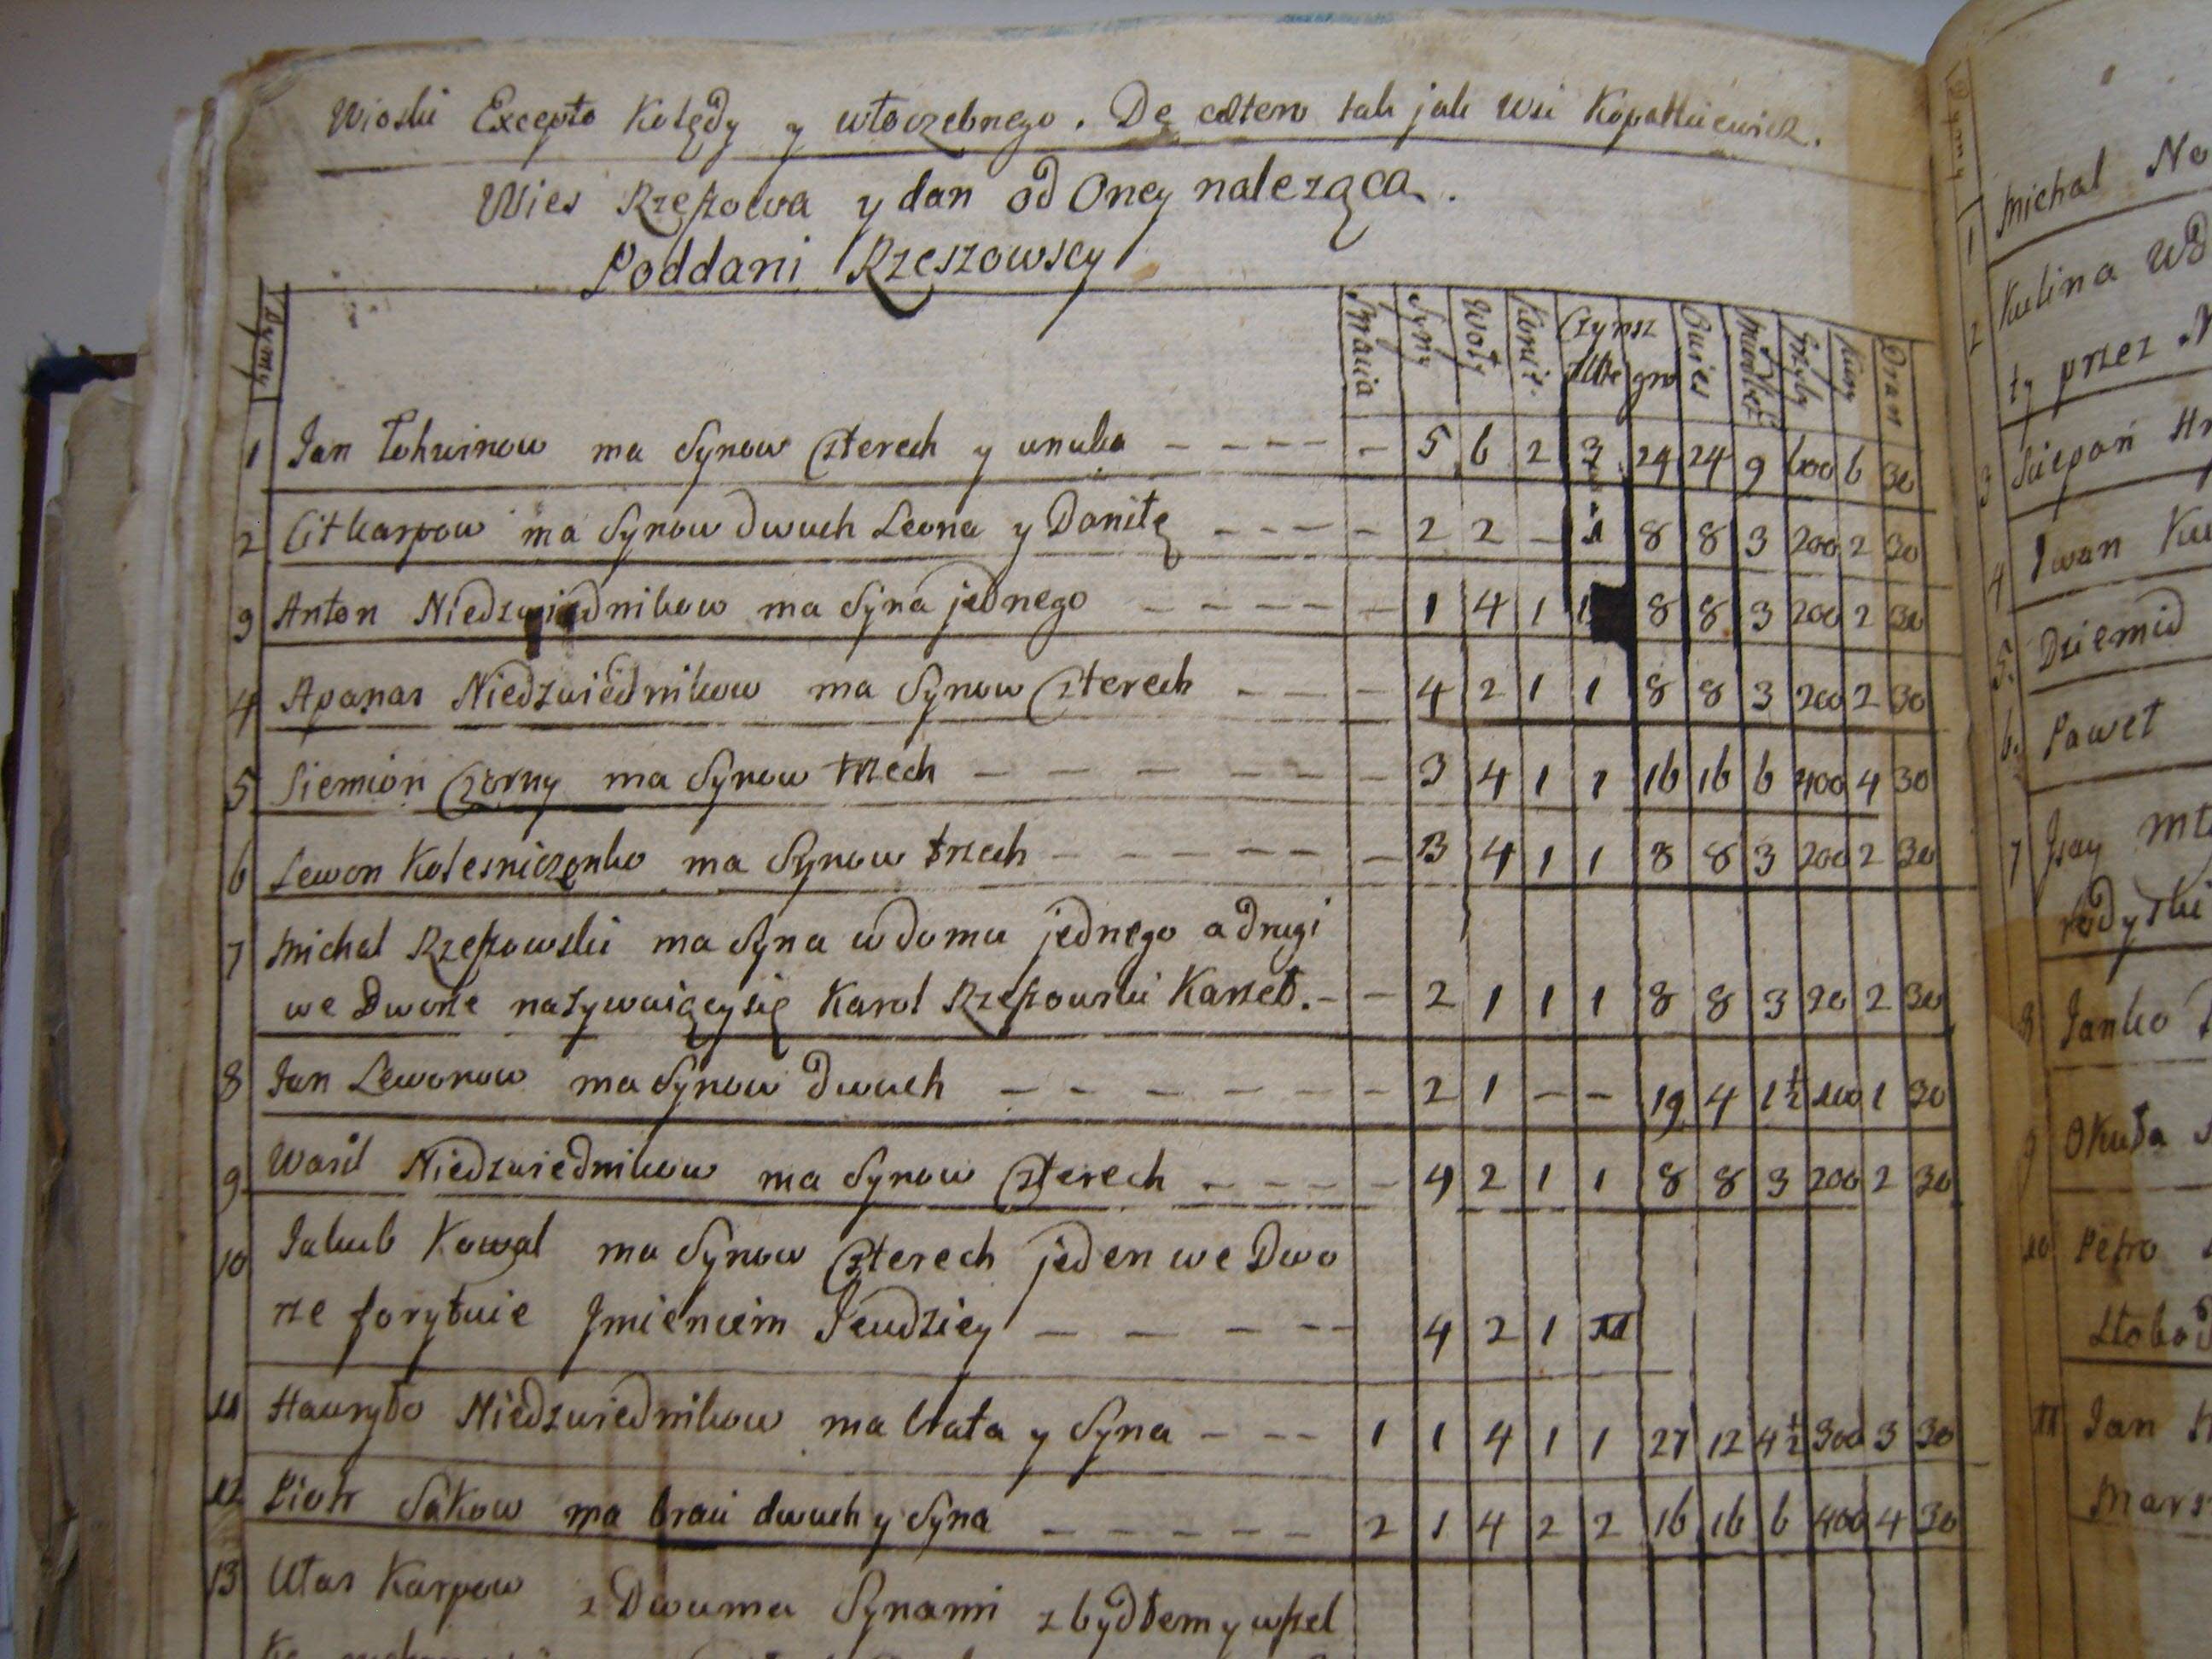 Wioski Excepto Kolędy y włoczebnego. De cætero tak jak Wsi Kopatkiewicz.
Wies Rzeszowa y dan od Oney nalezgca.
Poddani Rzeszowscy
Dymy Bracia Syny Woły Konie. Czynsz złłte gro Owies Grzyby Kury Dran
1 Jan Łohwinow ma Synow Czterech y wnuka - - - - - 5 6 2 3 24 24 9 600 6 30
2 Cit Karpow ma Synow dwuch Leona y Daniłę - - - - 2 2 - 1 8 8 3 200 2 30
3 Anton Niedzwiednikow ma Syna jednego - - - - - 1 4 1 1 8 8 3 200 2 30
4 Apanas Niedzwiednikow ma Synow Czterech - - - 4 2 1 1 8 8 3 200 2 30
5 Siemion Czorny ma Synow trzech - - - - - - - 3 4 1 1 16 16 6 400 4 30
6 Lewon Kolesniczenko ma Synow trzech - - - - - - 3 4 1 1 8 8 3 200 2 30
7 Michal Rzeszowski ma Syna w domu jednego a drugi
we Dworze nazywaiącysię Karol Rzeszowski - - 2 1 1 1 8 8 3 20 2 30
8 Jan Lewonow ma Synow dwuch - - - - - - - 2 1 - - 19 4 1½ 100 1 30
9 Wasil Niedzwiednikow ma Synow Czterech - - - - 4 2 1 1 8 8 3 200 2 30
10 Jakub Kowal ma Synow Czterech jeden we Dwo
rze forytuie Jmieniem Jeudziey - - - - - 4 2 1
11 Hauryło Niedzwiednikow ma brata y Syna - - - 1 1 4 1 1 27 12 4½ 300 3 30
12 Piotr Sakow ma braci dwuch y Syna - - - - - - 2 1 4 2 2 16 16 6 400 4 30
13 Ułas Karpow z Dwuma Synami z bydłem y wszel
Dymy
1 Michal No
2 Kulina Wd
ty przez
3 Sciepan Hr
4 Iwan Ku
5. Dziemid
6. Paweł
7 Jsay
8 Janko
9 Okuła
10 Petro
Słobod
11 Jan
Mars